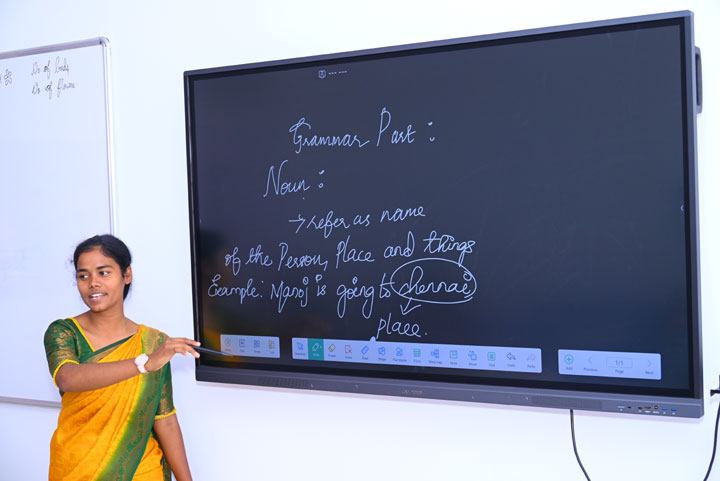 No of buds
No of flowers
Grammar Part :
Noun :
→ refer as name
of the Person, Place and things
Example: Manoj is going to chennai
place.
1/1
Add
Previous
Page
Next
Undo